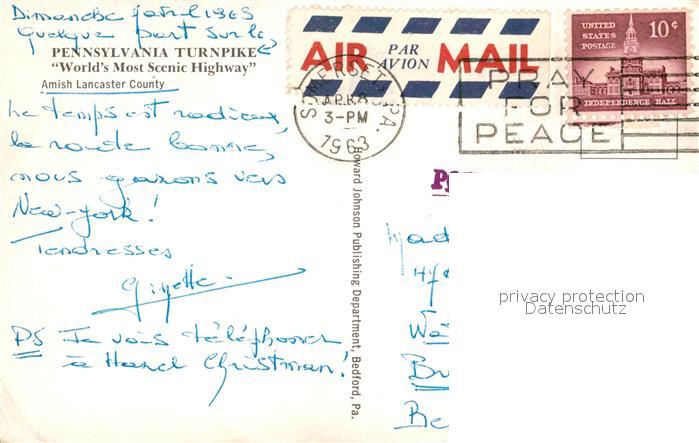 Dimanche 7 avril 1963
Quelque part sur le
PENNSYLVANIA TURNPIKE
"World's Most Scenic Highway"
Amish Lancaster County
Le temps est radieux,
la route bonne,
nous gazons vers
New-York!
Tendresses
Ginette
PS Je vais téléphoner
à Hazel Christman!
AIR PAR AVION MAIL
UNITED STATES POSTAGE 10¢
INDEPENDENCE HALL
SOMERSET, PA.
APR 8
3-PM
1963
PRAY
FOR
PEACE
Howard Johnson Publishing Department, Bedford, Pa.
P
Mad
47
Wa
Br
Be
privacy protection
Datenschutz